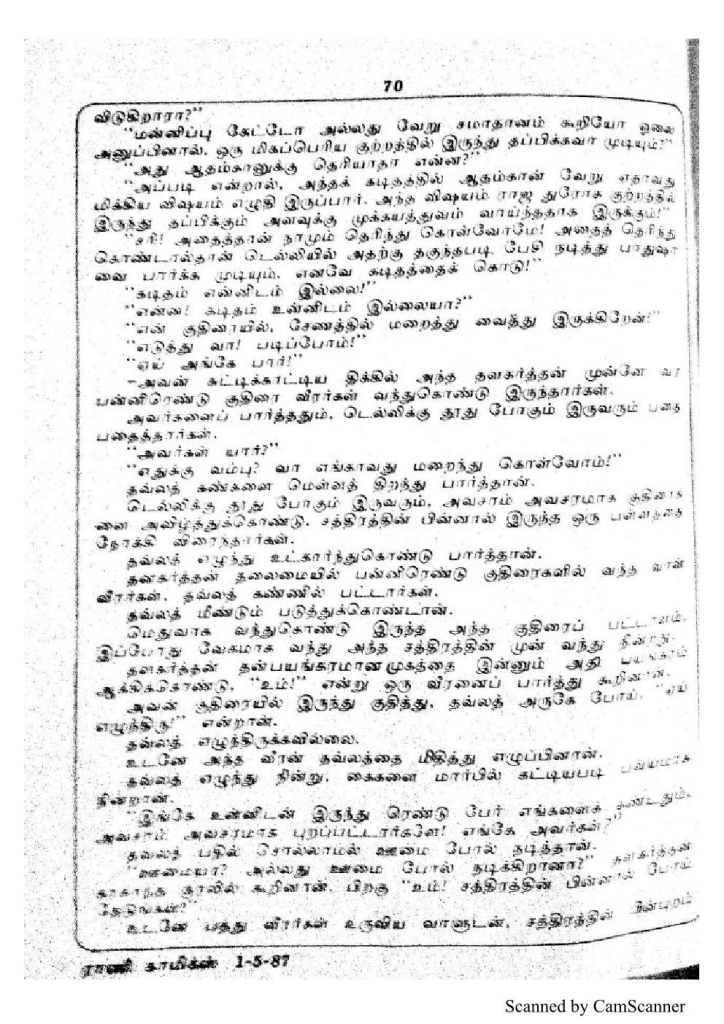 70
விடுகிறாரா?"
"மன்னிப்பு கேட்டோ அல்லது வேறு சமாதானம் கூறியோ ஓலை
அனுப்பினால், ஒரு மிகப்பெரிய குற்றத்தில் இருந்து தப்பிக்கவா முடியும்?"
"அது ஆதம்கானுக்கு தெரியாதா என்ன?"
"அப்படி என்றால், அந்தக் கடிதத்தில் ஆதம்கான் வேறு ஏதாவது
மிக்கிய விஷயம் எழுதி இருப்பார். அந்த விஷயம் ராஜ துரோக குற்றத்தில்
இருந்து தப்பிக்கும் அளவுக்கு முக்கயத்துவம் வாய்ந்ததாக இருக்கும்!"
"சரி! அதைத்தான் நாமும் தெரிந்து கொள்வோமே! அதைத் தெரிந்து
கொண்டால்தான் டெல்லியில் அதற்கு தகுந்தபடி பேசி நடித்து பாதுஷா
வை பார்க்க முடியும். எனவே கடிதத்தைக் கொடு!"
"கடிதம் என்னிடம் இல்லை!"
"என்ன! கடிதம் உன்னிடம் இல்லையா?"
"என் குதிரையில், சேணத்தில் மறைத்து வைத்து இருக்கிறேன்!"
"எடுத்து வா! படிப்போம்!"
"ஏய் அங்கே பார்!"
-அவன் சுட்டிக்காட்டிய திக்கில் அந்த தளகர்த்தன் முன்னே வர
பன்னிரெண்டு குதிரை வீரர்கள் வந்துகொண்டு இருந்தார்கள்.
அவர்களைப் பார்த்ததும், டெல்லிக்கு தூது போகும் இருவரும் பதை
பதைத்தார்கள்.
"அவர்கள் யார்?"
"எதுக்கு வம்பு? வா எங்காவது மறைந்து கொள்வோம்!"
தவ்லத் கண்களை மெள்ளத் திறந்து பார்த்தான்.
டெல்லிக்கு தூது போகும் இருவரும், அவசரம் அவசரமாக குதிரைக
ளை அவிழ்த்துக்கொண்டு, சத்திரத்தின் பின்னால் இருந்த ஒரு பள்ளத்தை
நோக்கி விரைந்தார்கள்.
தவ்லத் எழுந்து உட்கார்ந்துகொண்டு பார்த்தான்.
தளகர்த்தன் தலைமையில் பன்னிரெண்டு குதிரைகளில் வந்த வாள்
வீரர்கள், தவ்லத் கண்ணில் பட்டார்கள்.
தவ்லத் மீண்டும் படுத்துக்கொண்டான்.
மெதுவாக வந்துகொண்டு இருந்த அந்த குதிரைப் பட்டாளம்,
இப்போது வேகமாக வந்து அந்த சத்திரத்தின் முன் வந்து நின்றது.
தளகர்த்தன் தன்பயங்கரமானமுகத்தை இன்னும் அதி பயங்கரம்
ஆக்கிக்கொண்டு, "உம்!" என்று ஒரு வீரனைப் பார்த்து கூறினான்.
அவன் குதிரையில் இருந்து குதித்து, தவ்லத் அருகே போய், "ஏய்
எழுந்திரு!" என்றான்.
தவ்லத் எழுந்திருக்கவில்லை.
உடனே அந்த வீரன் தவ்லத்தை மிதித்து எழுப்பினான்.
தவ்லத் எழுந்து நின்று, கைகளை மார்பில் கட்டியபடி பவ்யமாக
நின்றான்.
"இங்கே உன்னிடன் இருந்து ரெண்டு பேர் எங்களைக் கண்டதும்,
அவசரம் அவசரமாக புறப்பட்டார்களே! எங்கே அவர்கள்?"
தவ்லத் பதில் சொல்லாமல் ஊமை போல் நடித்தான்.
"ஊமையா? அல்லது ஊமை போல் நடிக்கிறானா?" தளகர்த்தன்
குரலில் கூறினான். பிறகு "உம்! சத்திரத்தின் பின்னால் போய்
தேடுங்கள்?"
உடனே பத்து வீரர்கள் உருவிய வாளுடன், சத்திரத்தில் பின்புறம்
ராணி காமிக்ஸ் 1-5-87
Scanned by CamScanner